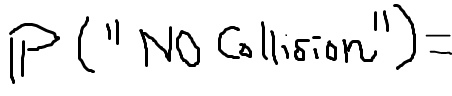 ℙ("NO Collision")=